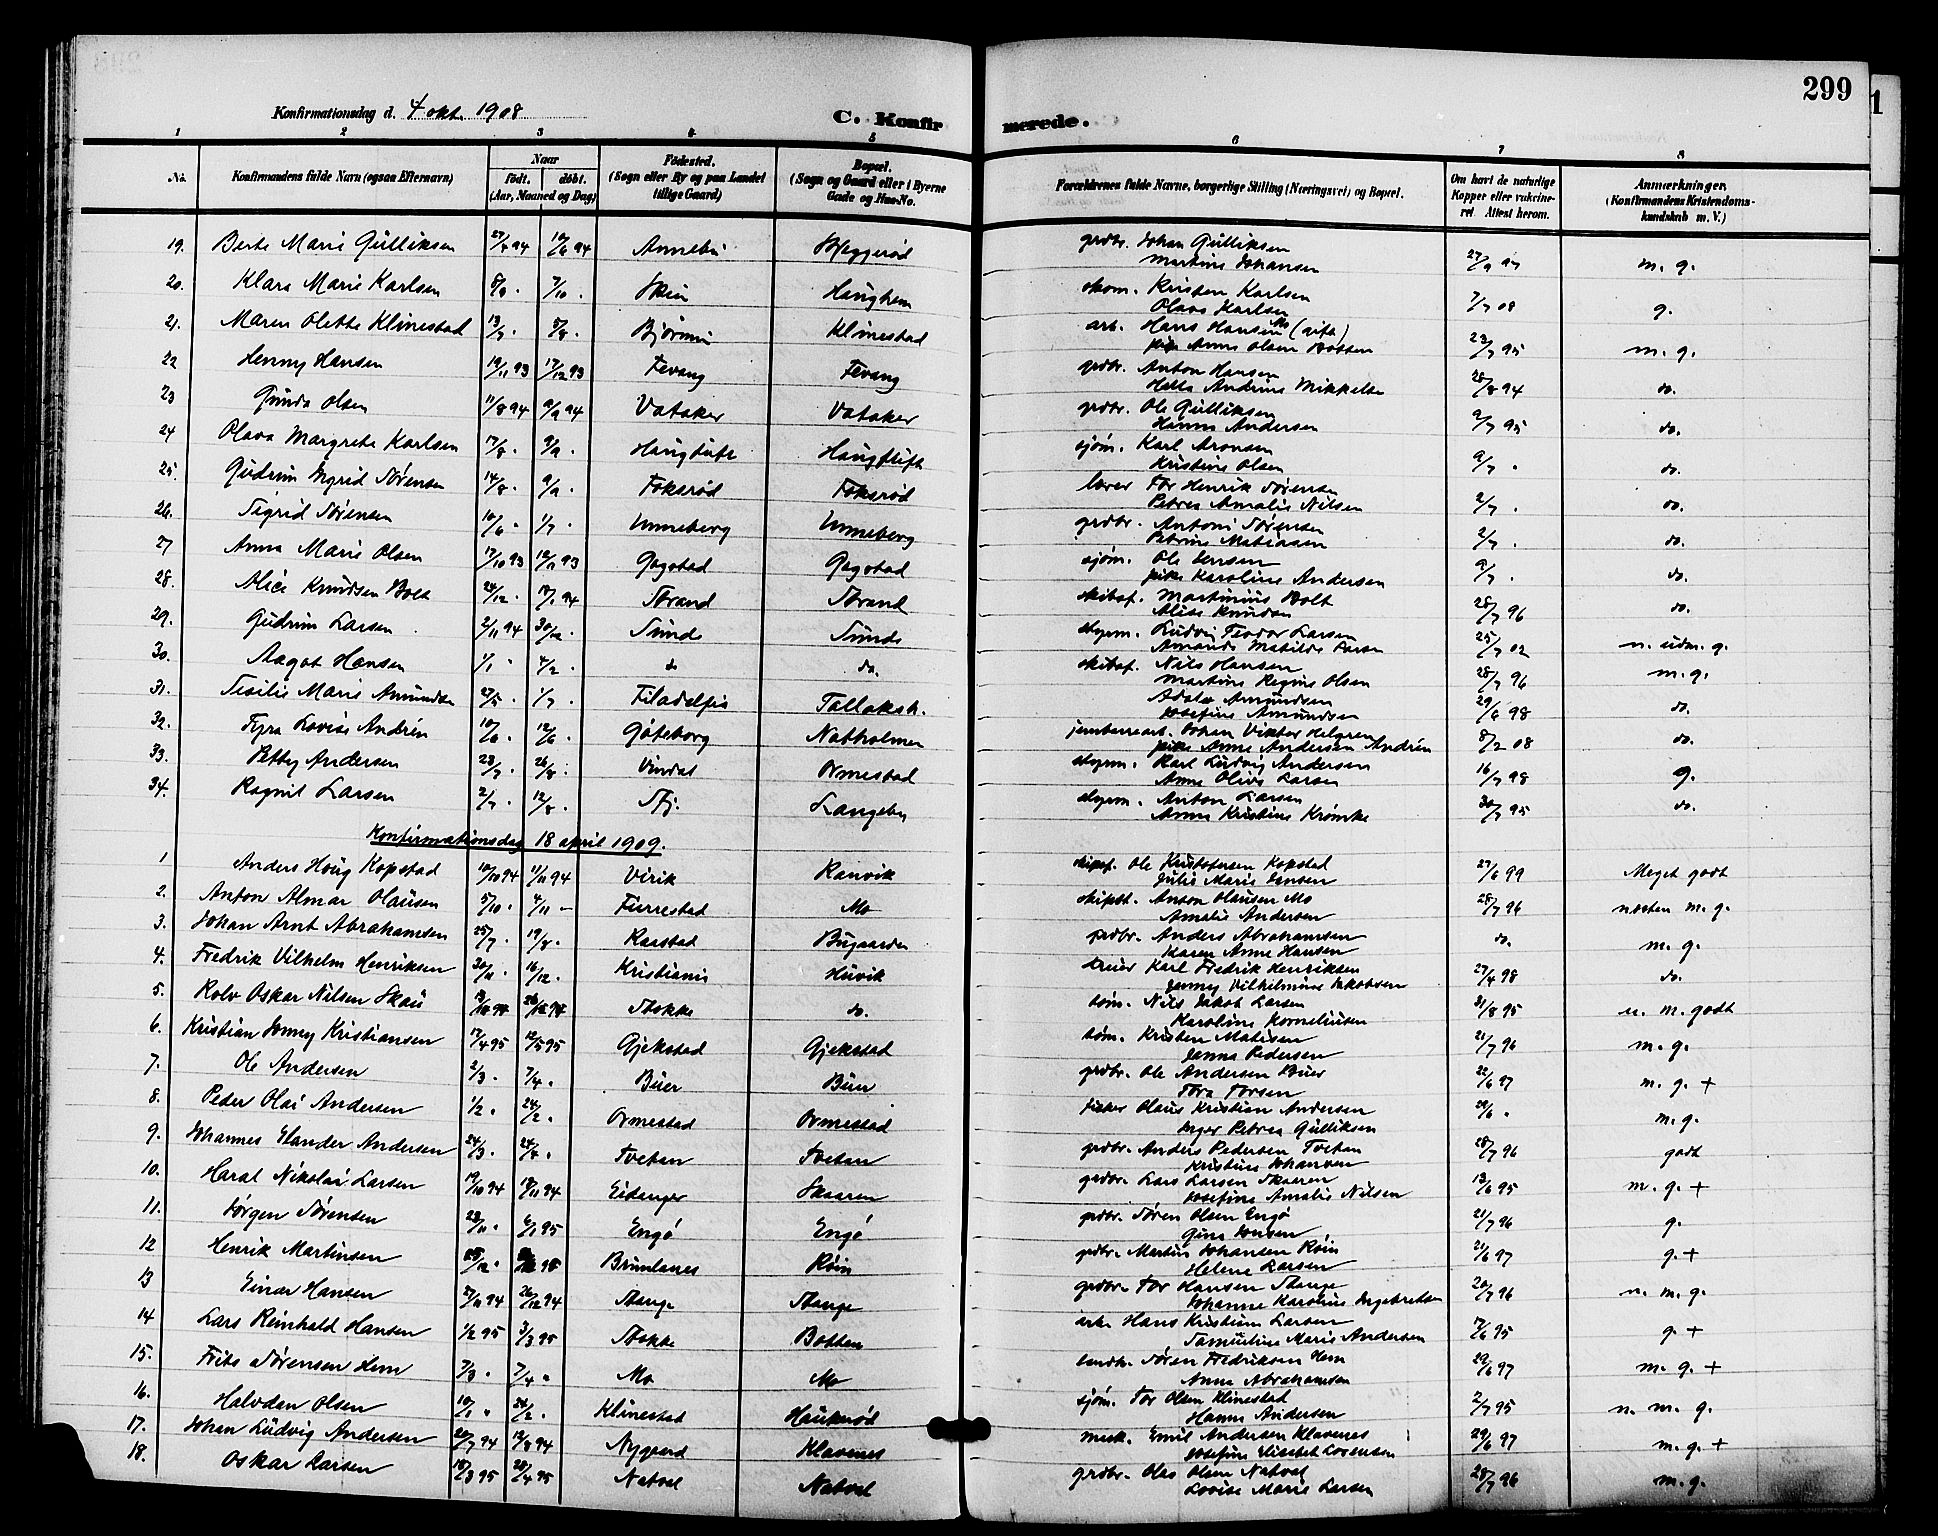 299
Konfirmationsdag d. 4 okt. 1908
C. Konfirmerede.
1 2 3 4 5 6 7 8
No. Konfirmandens fulde Navn (ogsaa Efternavn) Naar født. døbt. (Aar, Maaned og Dag) Fødested. (Sogn eller By og paa Landet tillige Gaard) Bopæl. (Sogn og Gaard eller i Byerne Gade og Hus-No. Forældrenes fulde Navne, borgerlige Stilling (Næringsvei) og Bopæl. Om havt de naturlige Kopper eller vakcineret. Attest herom. Anmærkninger. (Konfirmandens Kristendomskundskab m. V.)
19. Berte Marie Gulliksen 27/4 94 Annebu Bjeggerød grdbr. Johan Gulliksen m. g.
Martine Johansen
20. Klara Marie Karlsen 7/10 . Skin Haughem skom. Kristen Karlsen 7/7 08 g.
Olava Karlsen
21. Maren Olette Klinestad 13/7 . 5/8 . Klinestad arb. Hans Hansen (gift) 23/7 95 m. g.
pike Anne Olsen Botten
22 Henny Hansen 19/11 93 17/12 93 Fevang Fevang grdbr. Anton Hansen 28/8 94 do.
Hella Andrine Mikkelse
23 Gunda Olsen 11/8 94 9/9 94 Vataker Vataker grdbr. Ole Gulliksen 9/7 95 do.
Hanna Andersen
24 Olava Margrete Karlsen 17/8 . 9/9 . Haugtuft Haugtuft sjøm. Karl Aronsen 9/7 . do.
Kristine Olsen
25. Gudrun Ingrid Sørensen 14/8 . 9/9 . Foksrød Foksrød lærer Tor Henrik Sørensen 2/7 . do.
Petrea Amalie Nilsen
26. Sigrid Sørensen 10/6 . 1/7 . Unneberg Unneberg grdbr. Antoni Sørensen 2/7 . do.
Petrine Matiasen
27 Anna Marie Olsen 17/10 93 19/11 93 Gogstad Gogstad sjøm. Ole Jensen 9/7 . do.
pike Karoline Andersen
28. Alice Knudsen Bolt 24/12 . Strand Strand skibsf. Martinius Bolt 28/7 96 do.
Alise Knudsen
29. Gudrun Larsen 2/11 94 30/12 . Sunde Sunde styrm. Ludvig Teodor Larsen 25/7 02 n. udm. g.
Amanda Matilde Larsen
30. Aagot Hansen 1/1 . 4/2 . do do. skibsf. Nils Hansen 28/7 96 m. g.
Martine Regine Olsen
31. Sesilie Marie Amundsen 27/5 . 1/7 . Filadelfia Tallaksh. Amundsen 29/6 98 do.
Josefine Amundsen
32. Tyra Lovise Andrén 10/6 . 12/6 . Göteborg Natholmen Johan Viktor Helgren 8/2 08 do.
pike Anna Andersen Andrén
33. Petty Andersen 23/7 . 26/8 . Vindal Ormestad styrm. Karl Ludvig Andersen 16/7 98 g.
Anna Olivia Larsen
34. Ragnil Larsen 2/7 . 12/8 . Sfj. Langeby styrm. Anton Larsen 30/7 95 do.
Anna Kristine Krømke
Konfirmationsdag 18 april 1909.
1 Anders Houg Kopstad 10/10 94 11/11 94 Virik Ranvik skipsf. Ole Kristofersen Kopstad 27/6 99 Meget godt
Julie Marie Jensen
2. Anton Almar Olausen 5/10 . 4/11 – Furrestad Mo skipst. Anton Olausen Mo 28/7 96 næsten m. g.
Amalie Andersen
3. Johan Arnt Abrahamsen 25/7 . 19/8 . Raastad Bugaarden grdbr. Anders Abrahamsen do. m. g.
Karen Anne Hansen
4. Fredrik Vilhelm Henriksen 30/11 . 16/12 . Kristiania Huvik Karl Fredrik Henriksen 27/4 98 do.
Jenny Vilhelmine Jakobsen
5. Rolv Oskar Nilsen Skau Stokke do. tøm. Nils Jakob Larsen 31/8 95 n. m. godt
Karoline Korneliusen
6. Kristian Sonny Kristiansen 17/4 95 12/5 95 Gjekstad Gjekstad tøm. Kristen Matisen 21/7 96 m. g.
Janna Pedersen
7. Ole Andersen 2/3 . 7/4 . Buer Buer grdbr. Ole Andersen Buer 22/6 97 m. g. +
Tora Torsen
8. Peder Olai Andersen 1/2 . 24/2 . Ormestad Ormestad fisker Olaus Kristian Andersen 29/6 . m. g.
Inger Petrea Gulliksen
9. Johannes Elander Andersen 24/3 . Tvetan Tvetan grdbr. Anders Pedersen Tvetan 28/7 96 godt
Kristine Johansen
10. Haral Nikolai Larsen 19/10 94 18/11 94 Eidanger Skaaren grdbr. Lars Larsen Skaaren 13/6 95 m. g. +
Josefine Amalie Nilsen
11. Jørgen Sørensen 23/11 . 6/1 95 Engø Engø grdbr. Søren Olsen Engø 21/7 96 g.
Gina Jensen
12 Henrik Martinsen Brunlanes Røin grdbr. Martin Johansen Røin 21/6 97 g. +
Helene Larsen
13 Einar Hansen 27/11 94 26/12 94 Stange Stange grdbr. Tor Hansen Stange 20/7 96 n. m. g.
Johanne Karoline Ingebretsen
14 Lars Reinhald Hansen 1/2 95 3/3 95 Stokke Botten arb. Hans Kristian Larsen 17/6 95 g. +
Samueline Marie Andersen
15. Frits Sørensen Hem 7/3 . 7/4 . Mo Mo landh. Søren Fredriksen Hem 29/6 97 m. g. +
Anna Abrahamsen
16. Halvdan Olsen 10/1 . 24/2 . Klinestad Haukerød sjøm. Tor Olsen Klinestad 2/7 95 n. m. g.
Hanna Andersen
17. Johan Ludvig Andersen 20/7 94 12/8 94 Nygaard Klavenes mask. Emil Andersen Klavenes 29/6 97 m. g. +
Josefine Elisabet Lorensen
18. Oskar Larsen 18/3 95 28/4 95 Natvel Natvel grdbr. Olsen Natvel 28/7 96 m. g.
Lovise Marie Larsen